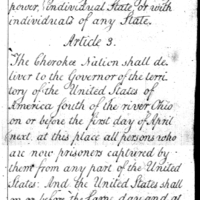 power, Individual State, or with
individuals of any State.
Article 3.
The Cherokee Nation shall de
liver to the Governor of the terri
tory of the United States of
America south of the river Ohio
on or before the first day of April
next, at this place all persons who
are now prisoners captured by
them from any part of the United
States: And the United States shall
on or before the same day and at